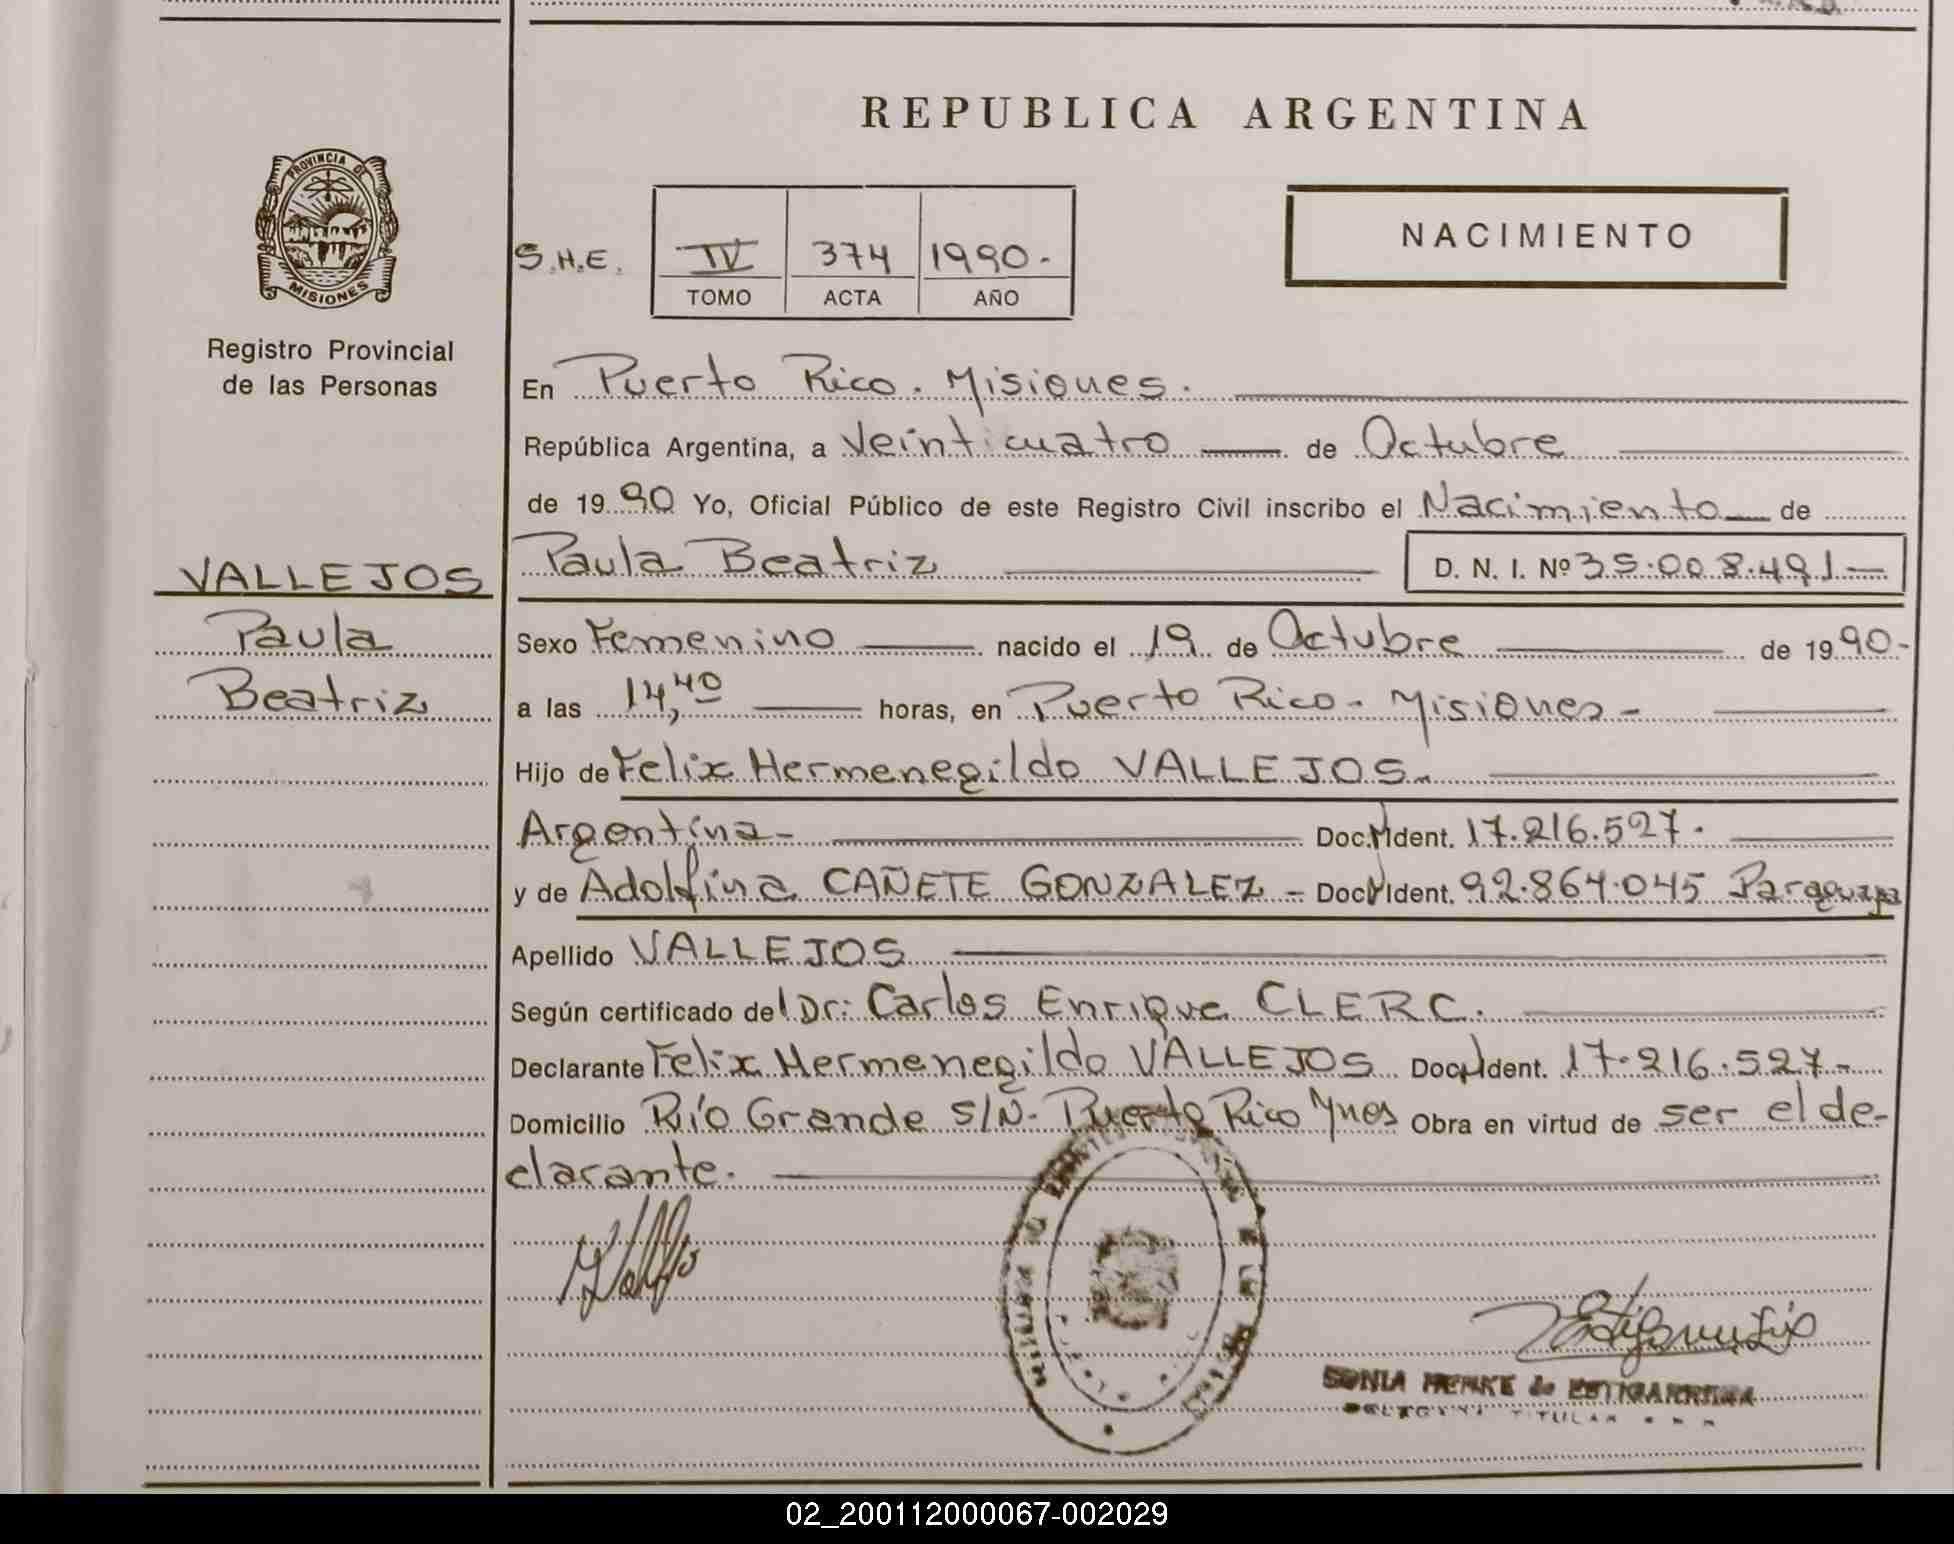 REPUBLICA ARGENTINA
PROVINCIA DE
MISIONES
Registro Provincial
de las Personas
NACIMIENTO
S.H.E. IV 374 1990.-
TOMO ACTA AÑO
En Puerto Rico. Misiones.
República Argentina, a Veinticuatro de Octubre
de 1990 Yo, Oficial Público de este Registro Civil inscribo el Nacimiento de
VALLEJOS
Paula
Beatriz
Paula Beatriz D. N. I. Nº 35.008.491-
Sexo Femenino nacido el 19 de Octubre de 1990-
a las 14,40 horas, en Puerto Rico - Misiones -
Hijo de Felix Hermenegildo VALLEJOS.-
Argentina- Doc. Ident. 17.216.527.
y de Adolfina CAÑETE GONZALEZ - Doc. Ident. 92.864.045 Paraguaya
Apellido VALLEJOS
Según certificado del Dr: Carlos Enrique CLERC.
Declarante Felix Hermenegildo VALLEJOS Doc. Ident. 17.216.527-
Domicilio Río Grande S/N- Puerto Rico Mnes Obra en virtud de ser el de-
clarante.
SONIA de
TITULAR
02_200112000067-002029